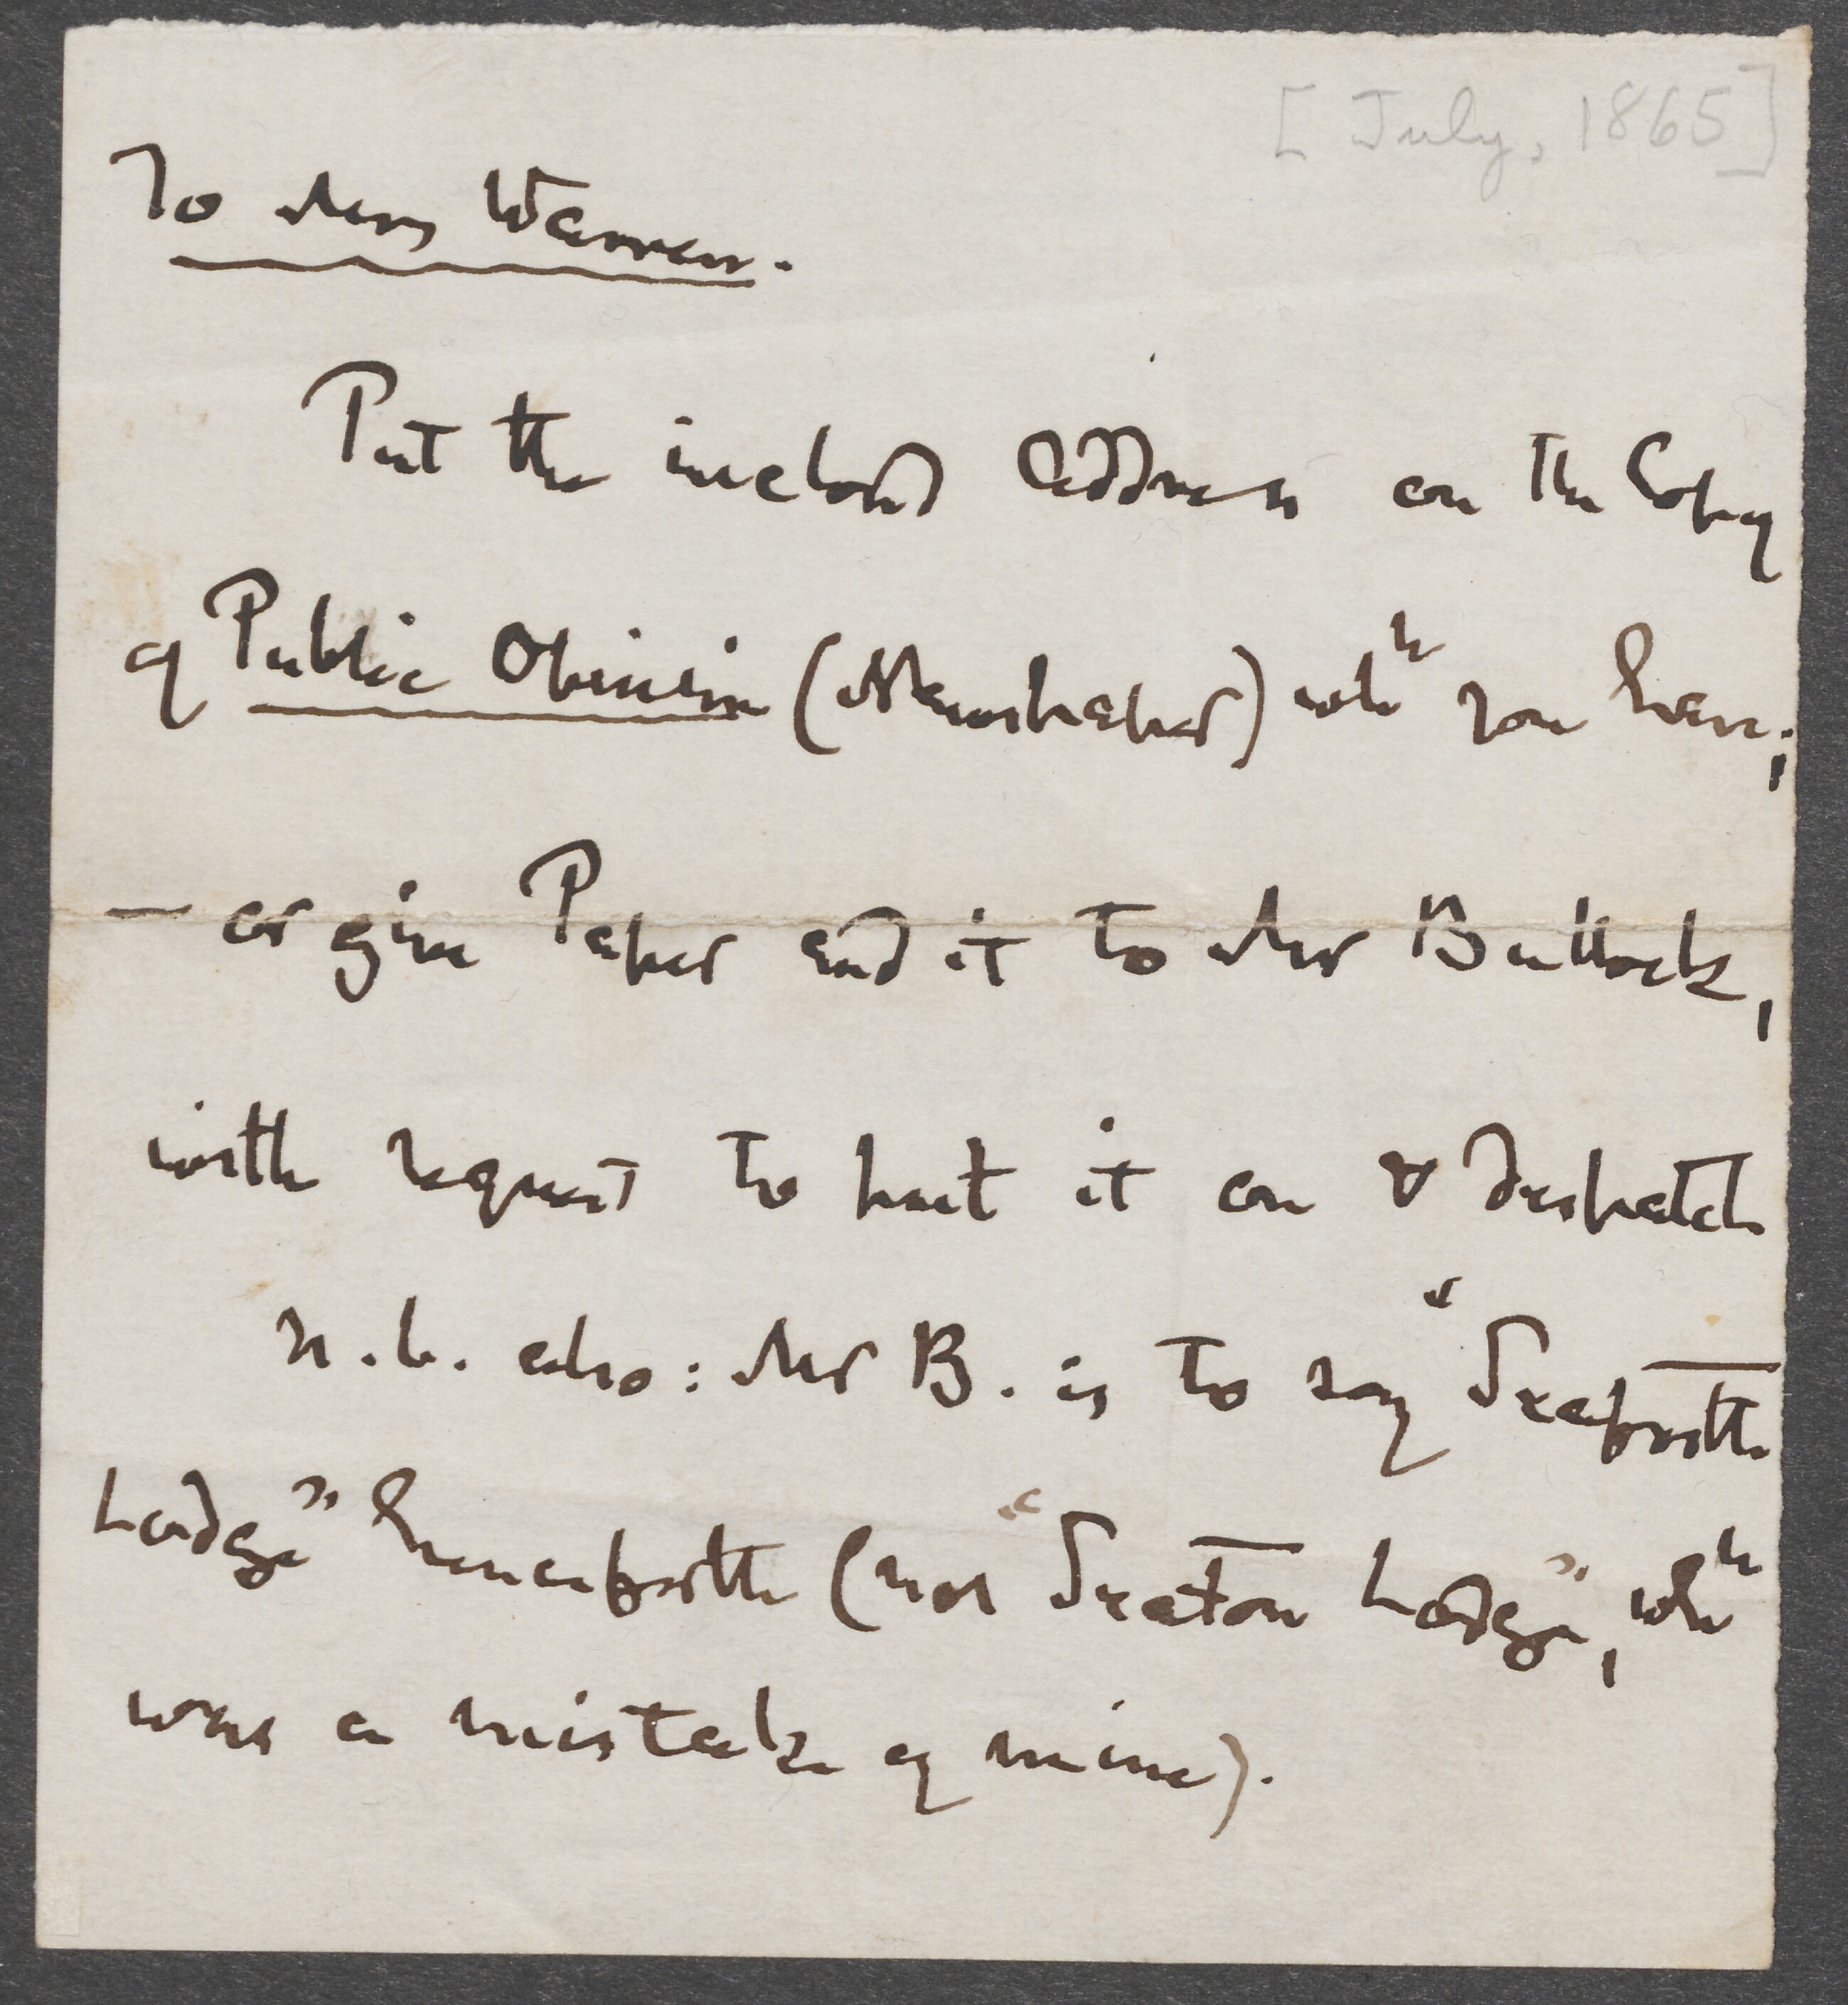 [July, 1865]
To Mrs Warren.
Put the inclosd Address on the Copy
of Public Opinion (Newspaper) whh you have;
— or give Paper and it to Mr Bullock,
with request to put it on & despatch
N.b. also: Mr B. is to say "Seaforth
Lodge" henceforth (not "Seaton Lodge", whh
was a mistake of mine).